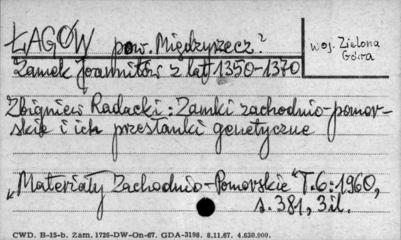 ŁAGÓW pow. Międzyrzecz?
woj. Zielona
Góra
Zamek Joannitów z lat 1350-1370
Zbigniew Radacki: Zamki zachodnio-pomor-
skie i ich przesłanki genetyczne
„Materiały Zachodnio-Pomorskie" T.6: 1960,
s. 381, 3 il.
CWD. B-15-b. Zam. 1726-DW-On-67. GDA-3198. 8.11.67. 4.630.000.